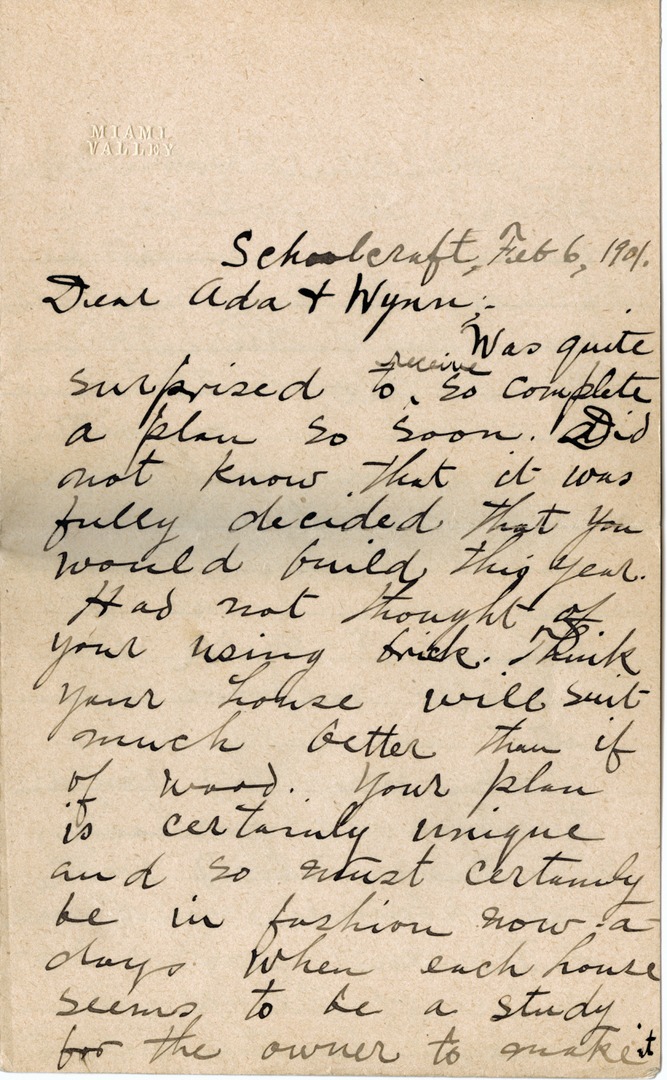 MIAMI
VALLEY
Schoolcraft, Feb 6, 1901.
Dear Ada + Wynn;-
Was quite
receive
surprised to ‸ so complete
a plan so soon. Did
not know that it was
fully decided that you
would build this year.
Had not thought of
your using brick. Think
your house will suit
much better than if
of wood. Your plan
is certainly unique
and so must certainly
be in fashion now-a-
days when each house
seems to be a study
for the owner to make it